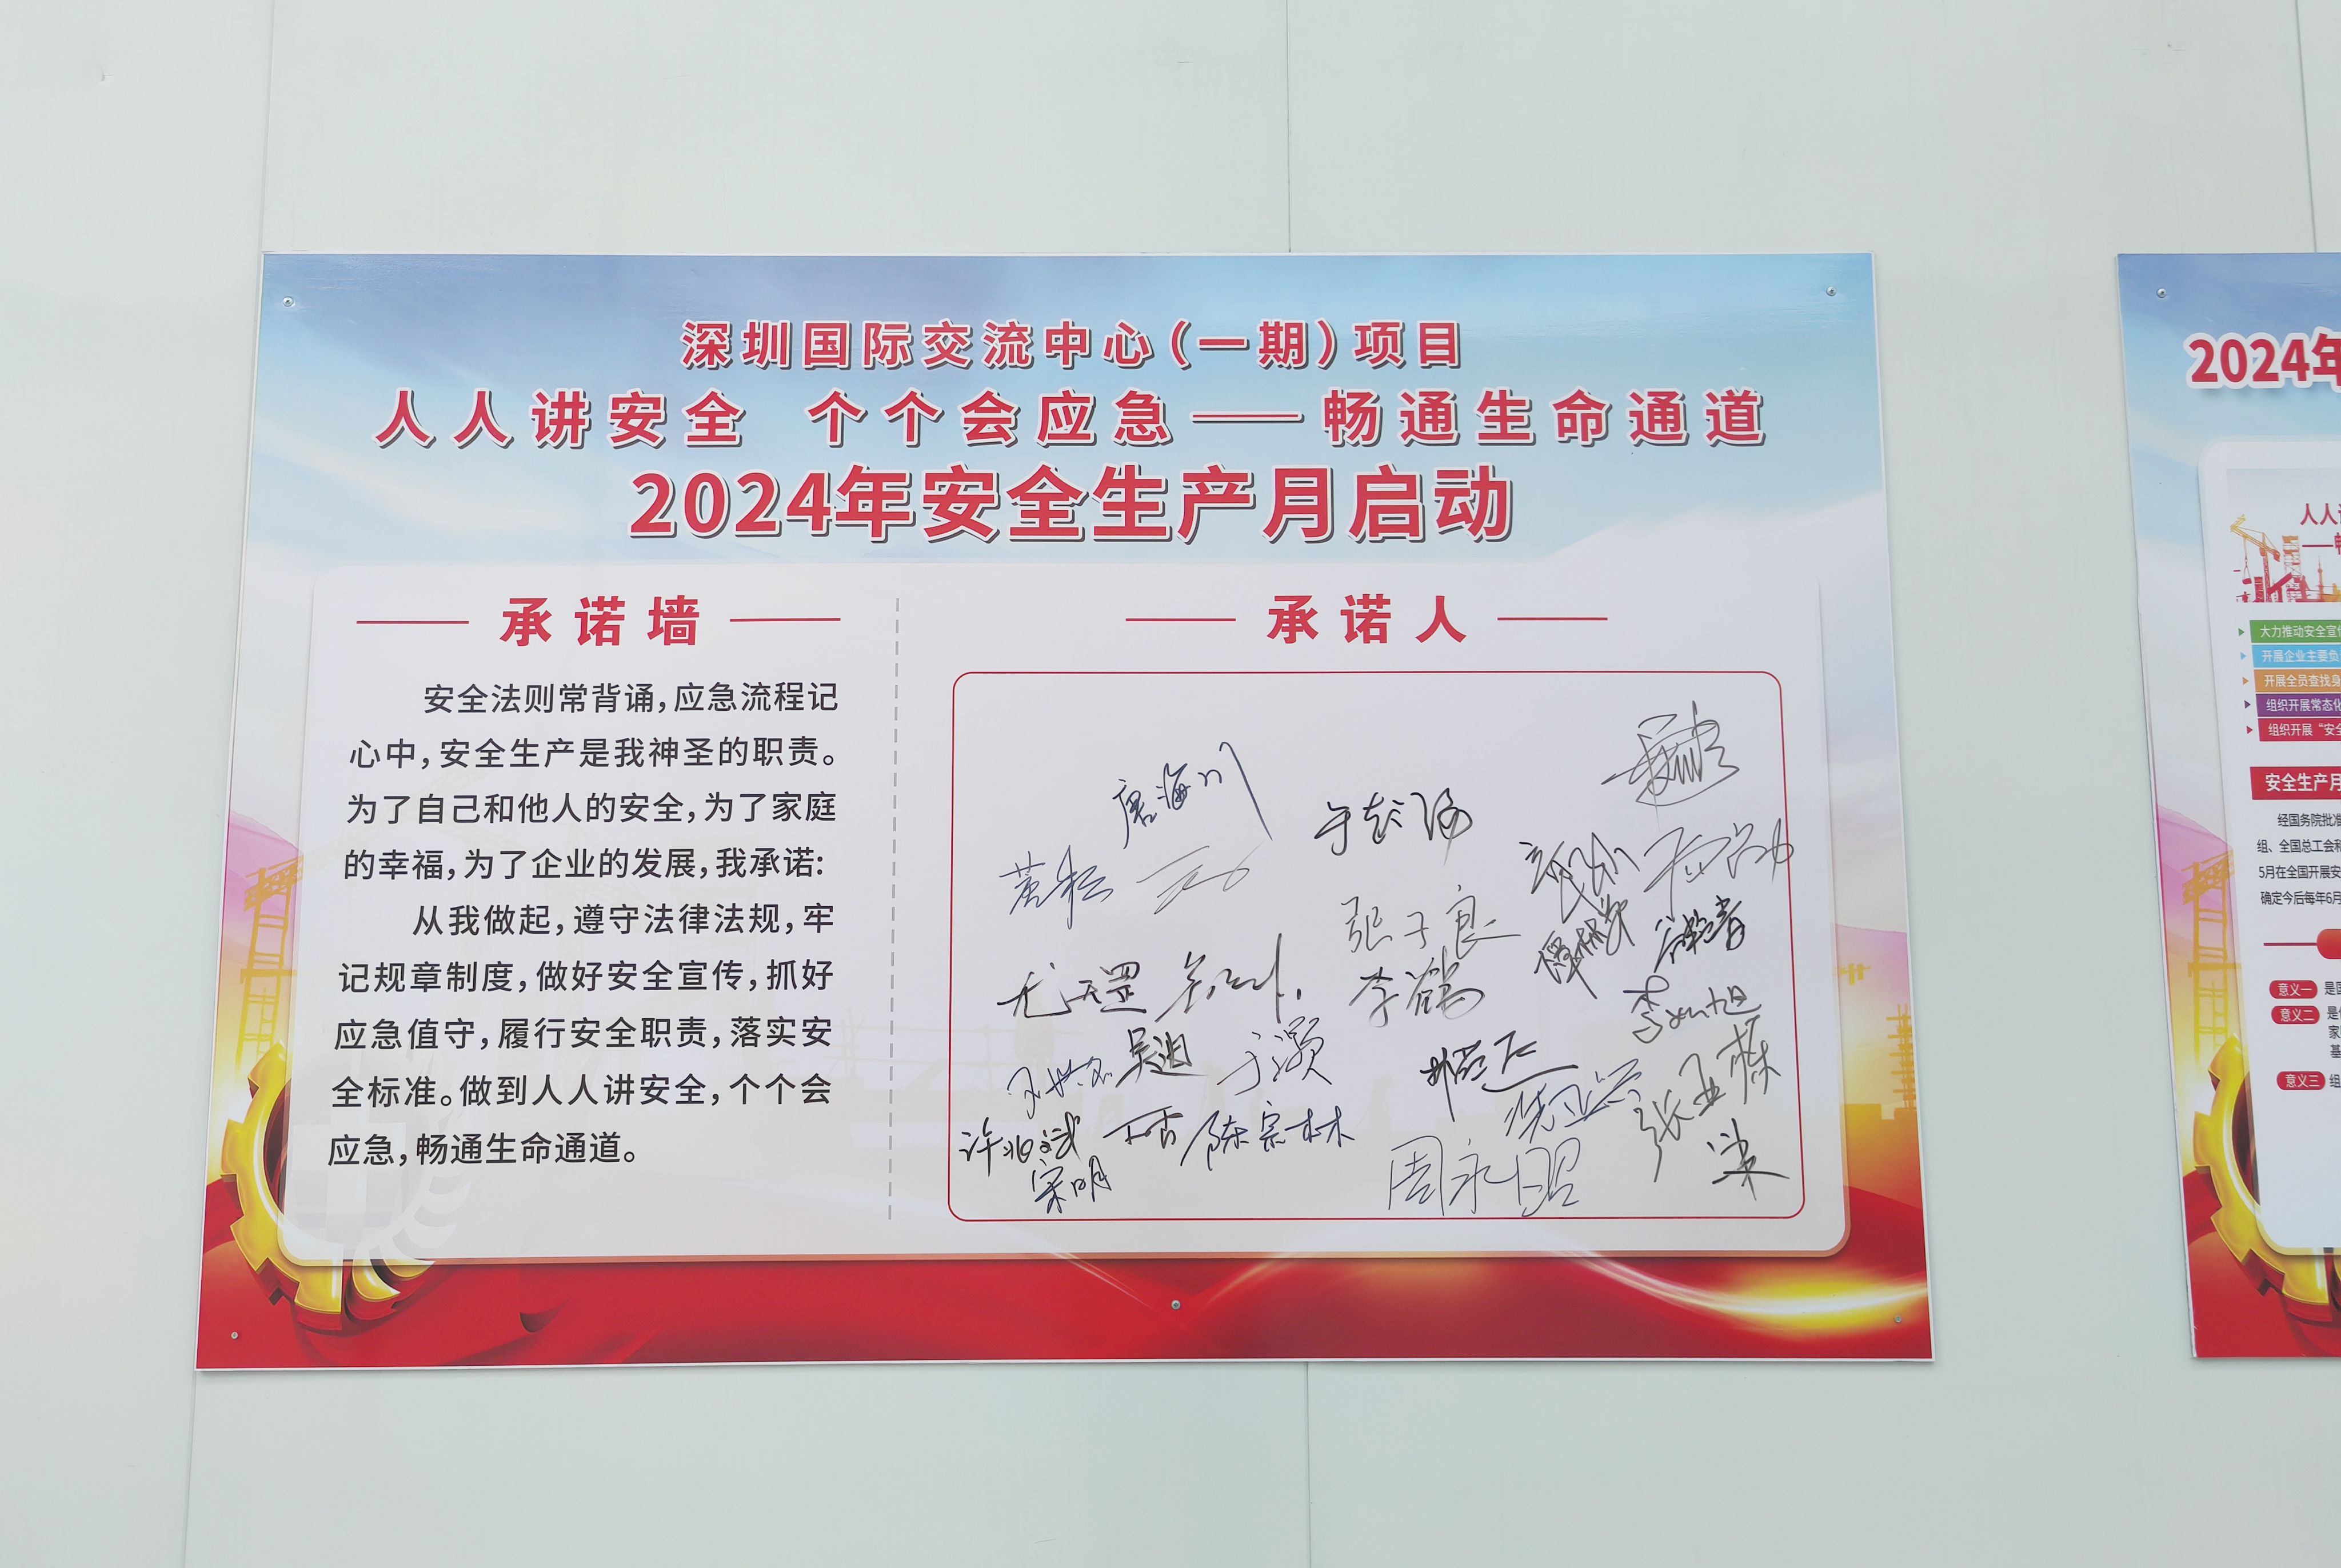 深圳国际交流中心(一期)项目
人人讲安全 个个会应急——畅通生命通道
2024年安全生产月启动
承诺墙
安全法则常背诵,应急流程记
心中,安全生产是我神圣的职责。
为了自己和他人的安全,为了家庭
的幸福,为了企业的发展,我承诺:
从我做起,遵守法律法规,牢
记规章制度,做好安全宣传,抓好
应急值守,履行安全职责,落实安
全标准。做到人人讲安全,个个会
应急,畅通生命通道。
承诺人
唐海川
张子良
李鹤
吴迪
于灏
陈宗林
宋明
周永昭
张亚栋
2024年
人人
大力推动安全宣
开展企业主要负
开展全员查找身
组织开展常态化
组织开展“安全
安全生产月
经国务院批准
组、全国总工会和
5月在全国开展安
确定今后每年6月
意义一 是
意义二 是
家
基
意义三 组